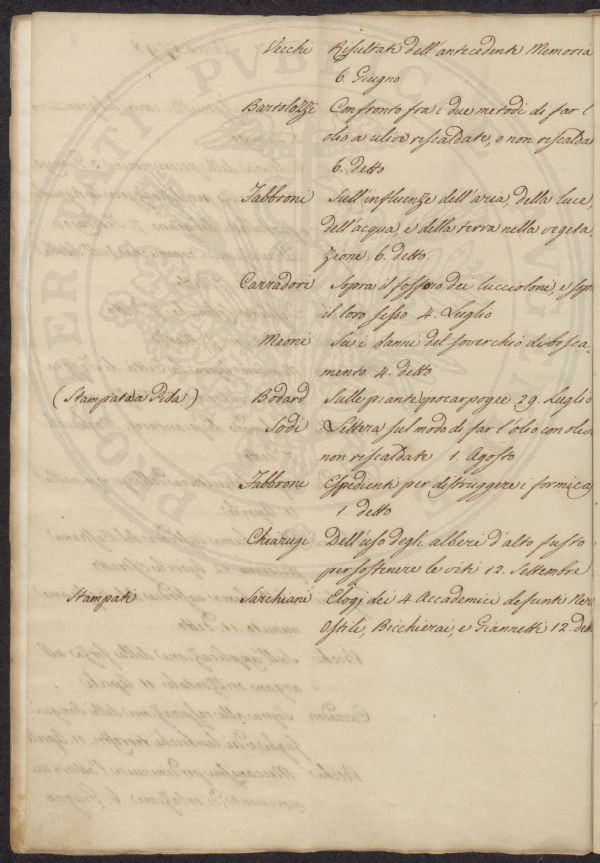 Vecchi Risultati dell'antecedente Memoria
6. Giugno
Bartolozzi Confronto fra i due metodi di far l'
olio a ulive riscaldate, o non riscalda
6. detto
Fabbroni Sull'influenze dell'aria, della luce,
dell'acqua, e della terra nella vegeta
zione 6. detto
Carradori Sopra il fosforo dei luccioloni, e sop
il loro sesso 4. Luglio
Meoni Su i danni del soverchio disbosca-
mento 4. detto
(Stampata a Pisa) Bodard Sulle piante ipocarpogee 29. Luglio
Sodi Lettera sul modo di far l'olio con olive
non riscaldate 1. Agosto
Fabbroni Espediente per distruggere i formica
1. detto
Chiarugi Dell'uso degli alberi d'alto fusto
per sostenere le viti 12. Settembre
Stampati Sarchiani Elogj dei 4. Accademici defunti Neri
Ostili, Bicchierai, e Giannetti 12. dett
PROPERTATI PVBLICAE